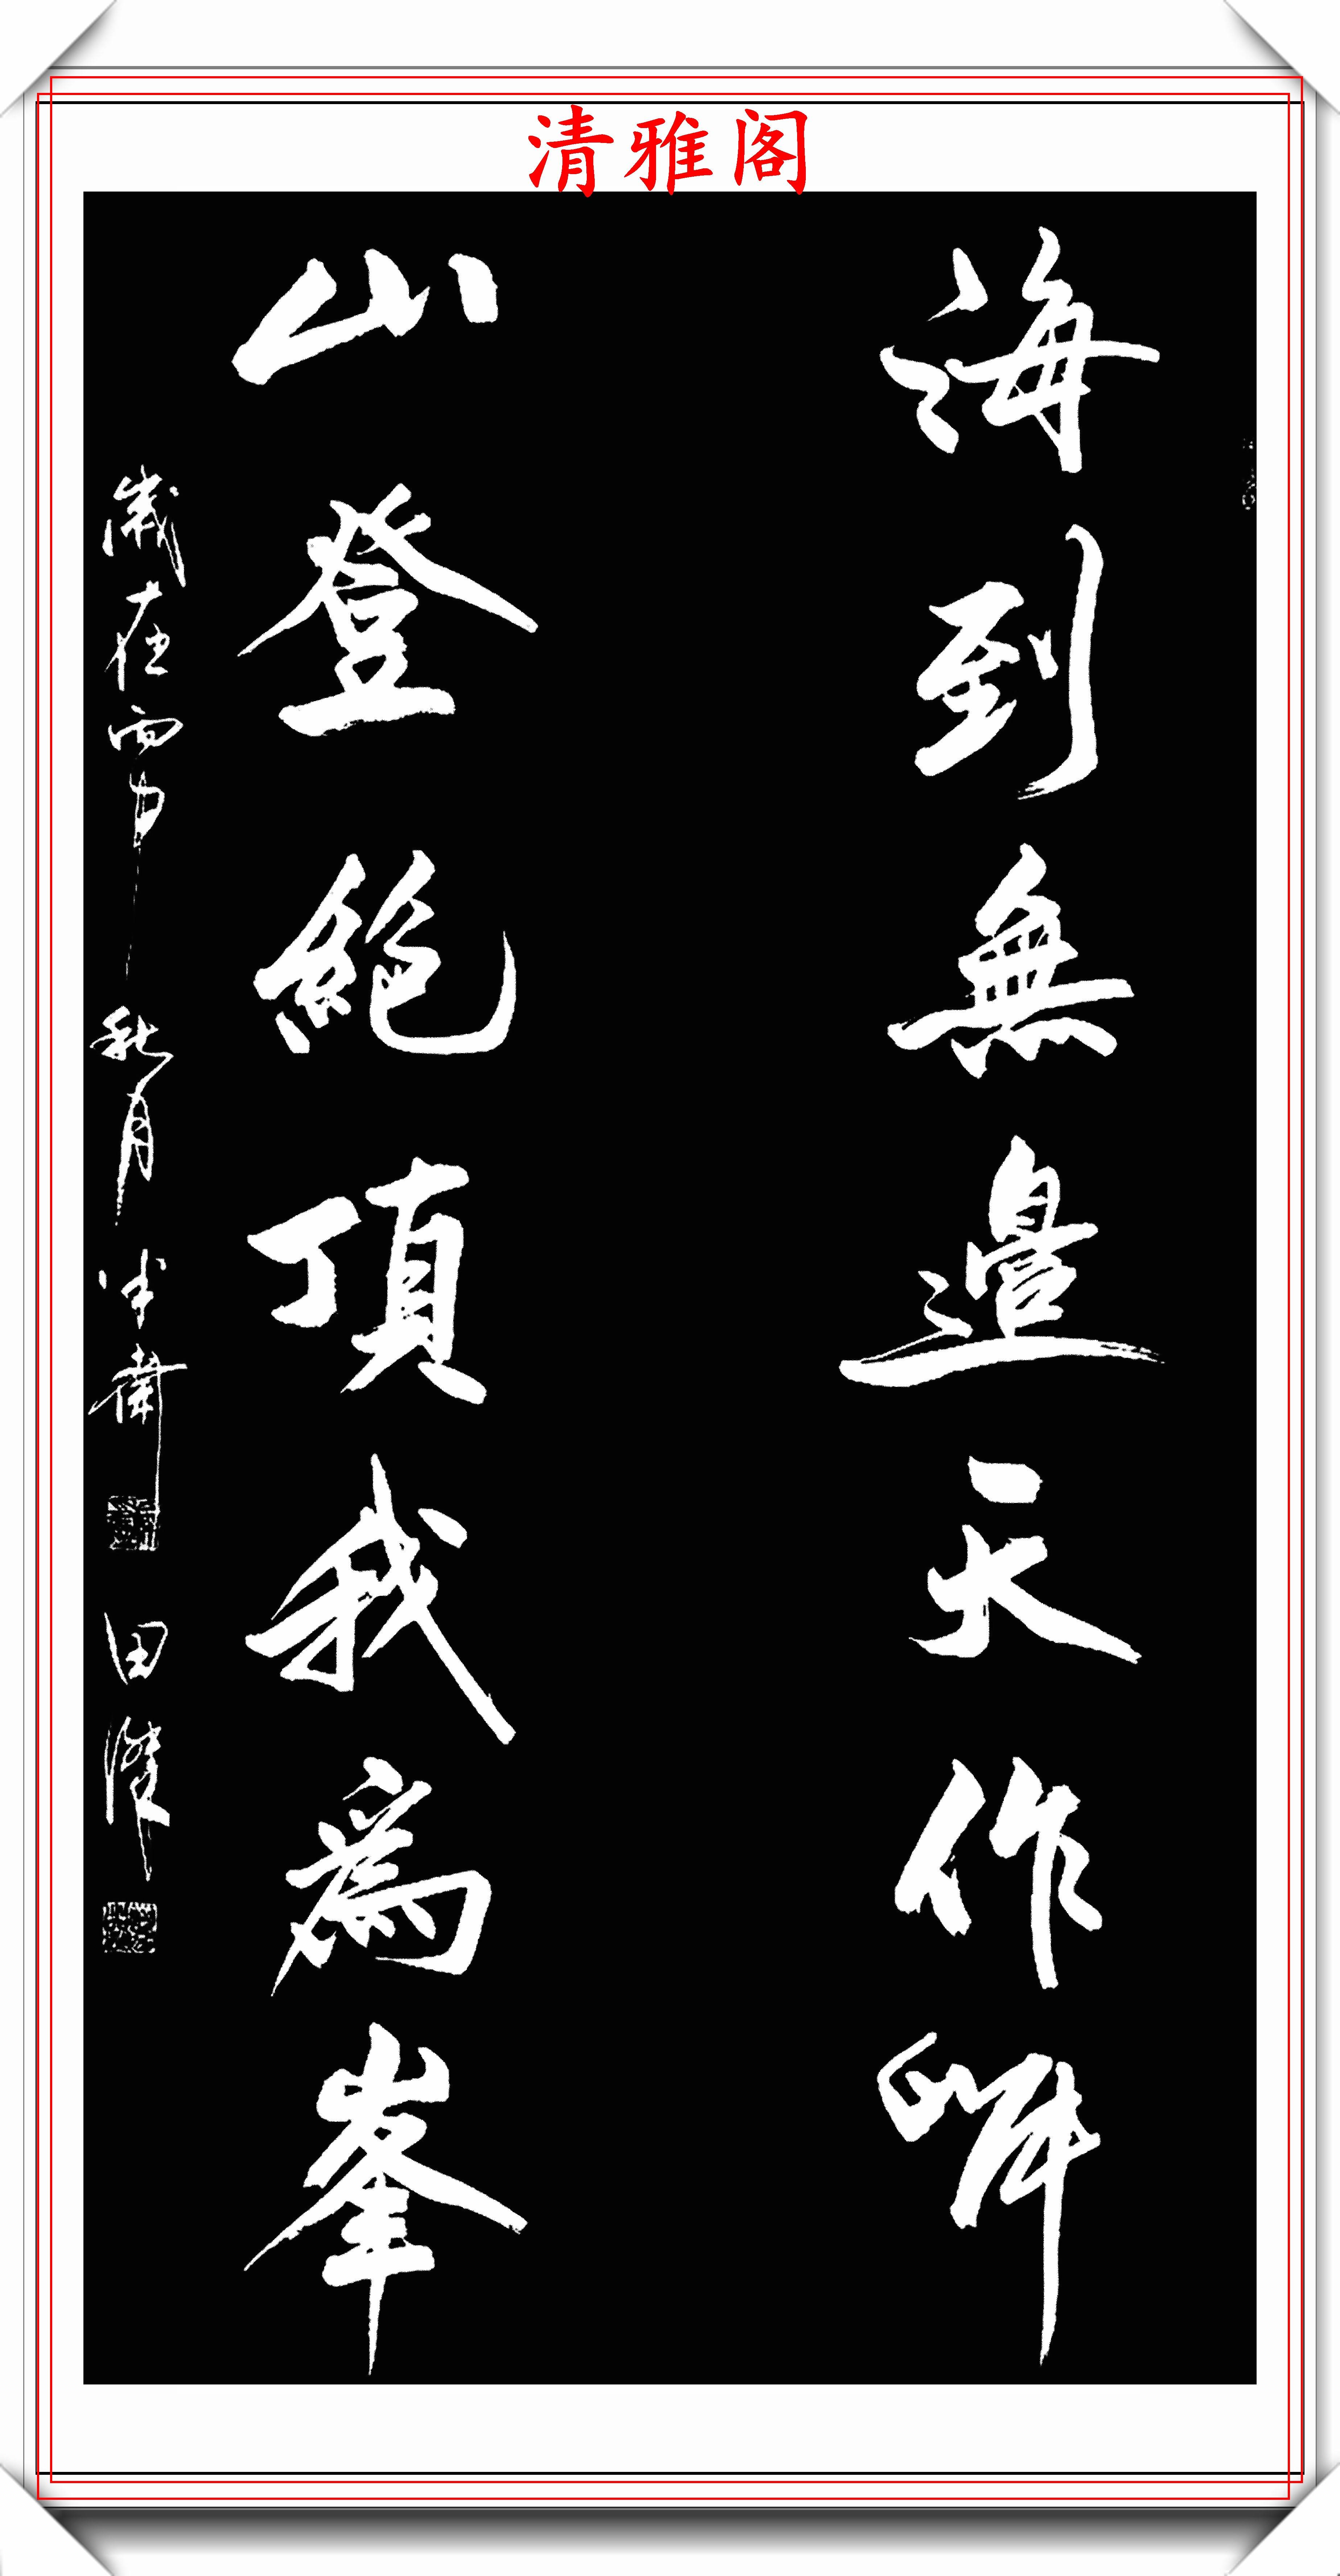 清雅阁
海到無邊天作岸
山登絕頂我為峯
歲在丙申秋月
田